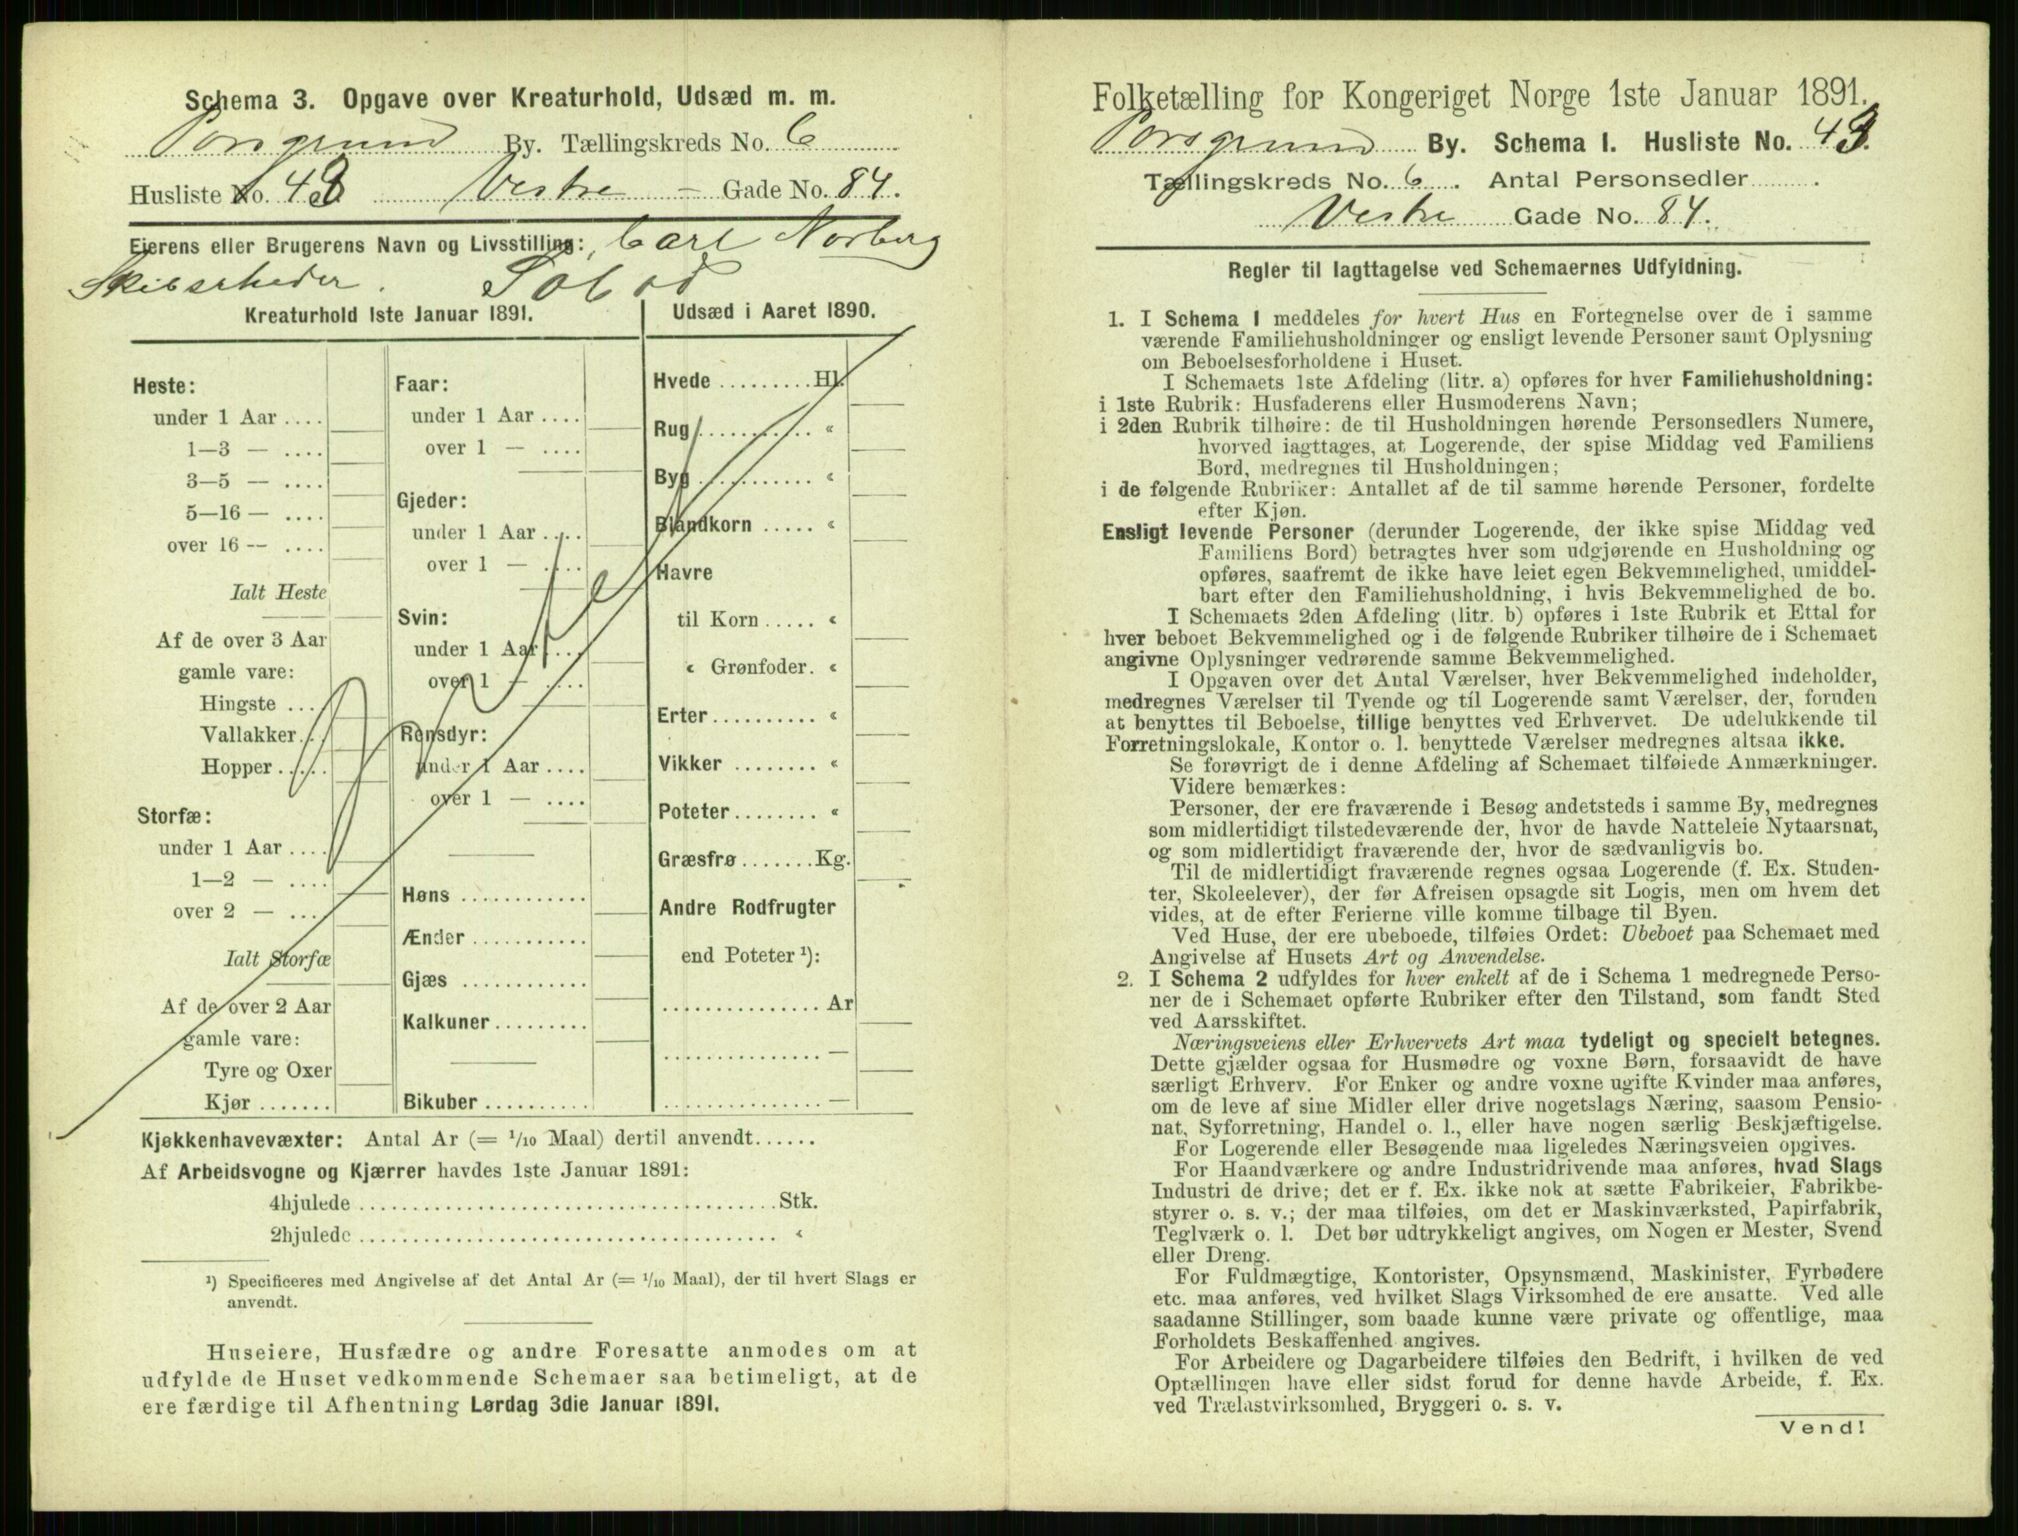 Schema 3. Opgave over Kreaturhold, Udsæd m. m.
Porsgrund By. Tællingskreds No. 6
Husliste No. 43 Vestre - Gade No. 84.
Eierens eller Brugerens Navn og Livsstilling: Carl Norberg
Skibsrheder.
Kreaturhold 1ste Januar 1891.
Heste:
under 1 Aar ....
1—3 — ....
3—5 — ....
5—16 — ....
over 16 — ....
Ialt Heste
Af de over 3 Aar
gamle vare:
Hingste ...
Vallakker...
Hopper .....
Storfæ:
under 1 Aar ....
1—2 — ....
over 2 — ....
Ialt Storfæ
Af de over 2 Aar
gamle vare:
Tyre og Oxer
Kjør .......
Faar:
under 1 Aar ....
over 1 — ....
Gjeder:
under 1 Aar ....
over 1 — ....
Svin:
under 1 Aar ....
over 1 — ....
Rensdyr:
under 1 Aar ....
over 1 — ....
Høns ............
Ænder ...........
Gjæs ............
Kalkuner.........
Bikuber ..........
Udsæd i Aaret 1890.
Hvede ......... Hl.
Rug ........... «
Byg ........... «
Blandkorn ..... «
Havre
til Korn ..... «
« Grønfoder. «
Erter.......... «
Vikker ........ «
Poteter........ «
Græsfrø .......Kg.
Andre Rodfrugter
end Poteter ¹):
............... Ar
............... —
............... —
Kjøkkenhavevæxter: Antal Ar (= 1/10 Maal) dertil anvendt......
Af Arbeidsvogne og Kjærrer havdes 1ste Januar 1891:
4hjulede ....................................... Stk.
2hjulede ....................................... «
¹) Specificeres med Angivelse af det Antal Ar (= 1/10 Maal), der til hvert Slags er
anvendt.
Huseiere, Husfædre og andre Foresatte anmodes om at
udfylde de Huset vedkommende Schemaer saa betimeligt, at de
ere færdige til Afhentning Lørdag 3die Januar 1891.
Folketælling for Kongeriget Norge 1ste Januar 1891.
Porsgrund By. Schema I. Husliste No. 43.
Tællingskreds No. 6. Antal Personsedler ........ .
Vestre Gade No. 84.
Regler til Iagttagelse ved Schemaernes Udfyldning.
1. I Schema 1 meddeles for hvert Hus en Fortegnelse over de i samme
værende Familiehusholdninger og ensligt levende Personer samt Oplysning
om Beboelsesforholdene i Huset.
I Schemaets 1ste Afdeling (litr. a) opføres for hver Familiehusholdning:
i 1ste Rubrik: Husfaderens eller Husmoderens Navn;
i 2den Rubrik tilhøire: de til Husholdningen hørende Personsedlers Numere,
hvorved iagttages, at Logerende, der spise Middag ved Familiens
Bord, medregnes til Husholdningen;
i de følgende Rubriker: Antallet af de til samme hørende Personer, fordelte
efter Kjøn.
Ensligt levende Personer (derunder Logerende, der ikke spise Middag ved
Familiens Bord) betragtes hver som udgjørende en Husholdning og
opføres, saafremt de ikke have leiet egen Bekvemmelighed, umiddel-
bart efter den Familiehusholdning, i hvis Bekvemmelighed de bo.
I Schemaets 2den Afdeling (litr. b) opføres i 1ste Rubrik et Ettal for
hver beboet Bekvemmelighed og i de følgende Rubriker tilhøire de i Schemaet
angivne Oplysninger vedrørende samme Bekvemmelighed.
I Opgaven over det Antal Værelser, hver Bekvemmelighed indeholder,
medregnes Værelser til Tyende og til Logerende samt Værelser, der, foruden
at benyttes til Beboelse, tillige benyttes ved Erhvervet. De udelukkende til
Forretningslokale, Kontor o. l. benyttede Værelser medregnes altsaa ikke.
Se forøvrigt de i denne Afdeling af Schemaet tilføiede Anmærkninger.
Videre bemærkes:
Personer, der ere fraværende i Besøg andetsteds i samme By, medregnes
som midlertidigt tilstedeværende der, hvor de havde Natteleie Nytaarsnat,
og som midlertidigt fraværende der, hvor de sædvanligvis bo.
Til de midlertidigt fraværende regnes ogsaa Logerende (f. Ex. Studen-
ter, Skoleelever), der før Afreisen opsagde sit Logis, men om hvem det
vides, at de efter Ferierne ville komme tilbage til Byen.
Ved Huse, der ere ubeboede, tilføies Ordet: Ubeboet paa Schemaet med
Angivelse af Husets Art og Anvendelse.
2. I Schema 2 udfyldes for hver enkelt af de i Schema 1 medregnede Perso-
ner de i Schemaet opførte Rubriker efter den Tilstand, som fandt Sted
ved Aarsskiftet.
Næringsveiens eller Erhvervets Art maa tydeligt og specielt betegnes.
Dette gjælder ogsaa for Husmødre og voxne Børn, forsaavidt de have
særligt Erhverv. For Enker og andre voxne ugifte Kvinder maa anføres,
om de leve af sine Midler eller drive nogetslags Næring, saasom Pensio-
nat, Syforretning, Handel o. l., eller have nogen særlig Beskjæftigelse.
For Logerende eller Besøgende maa ligeledes Næringsveien opgives.
For Haandværkere og andre Industridrivende maa anføres, hvad Slags
Industri de drive; det er f. Ex. ikke nok at sætte Fabrikeier, Fabrikbe-
styrer o. s. v.; der maa tilføies, om det er Maskinværksted, Papirfabrik,
Teglværk o. l. Det bør udtrykkeligt angives, om Nogen er Mester, Svend
eller Dreng.
For Fuldmægtige, Kontorister, Opsynsmænd, Maskinister, Fyrbødere
etc. maa anføres, ved hvilket Slags Virksomhed de ere ansatte. Ved alle
saadanne Stillinger, som baade kunne være private og offentlige, maa
Forholdets Beskaffenhed angives.
For Arbeidere og Dagarbeidere tilføies den Bedrift, i hvilken de ved
Optællingen have eller sidst forud for denne havde Arbeide, f. Ex.
ved Trælastvirksomhed, Bryggeri o. s. v.
Vend!